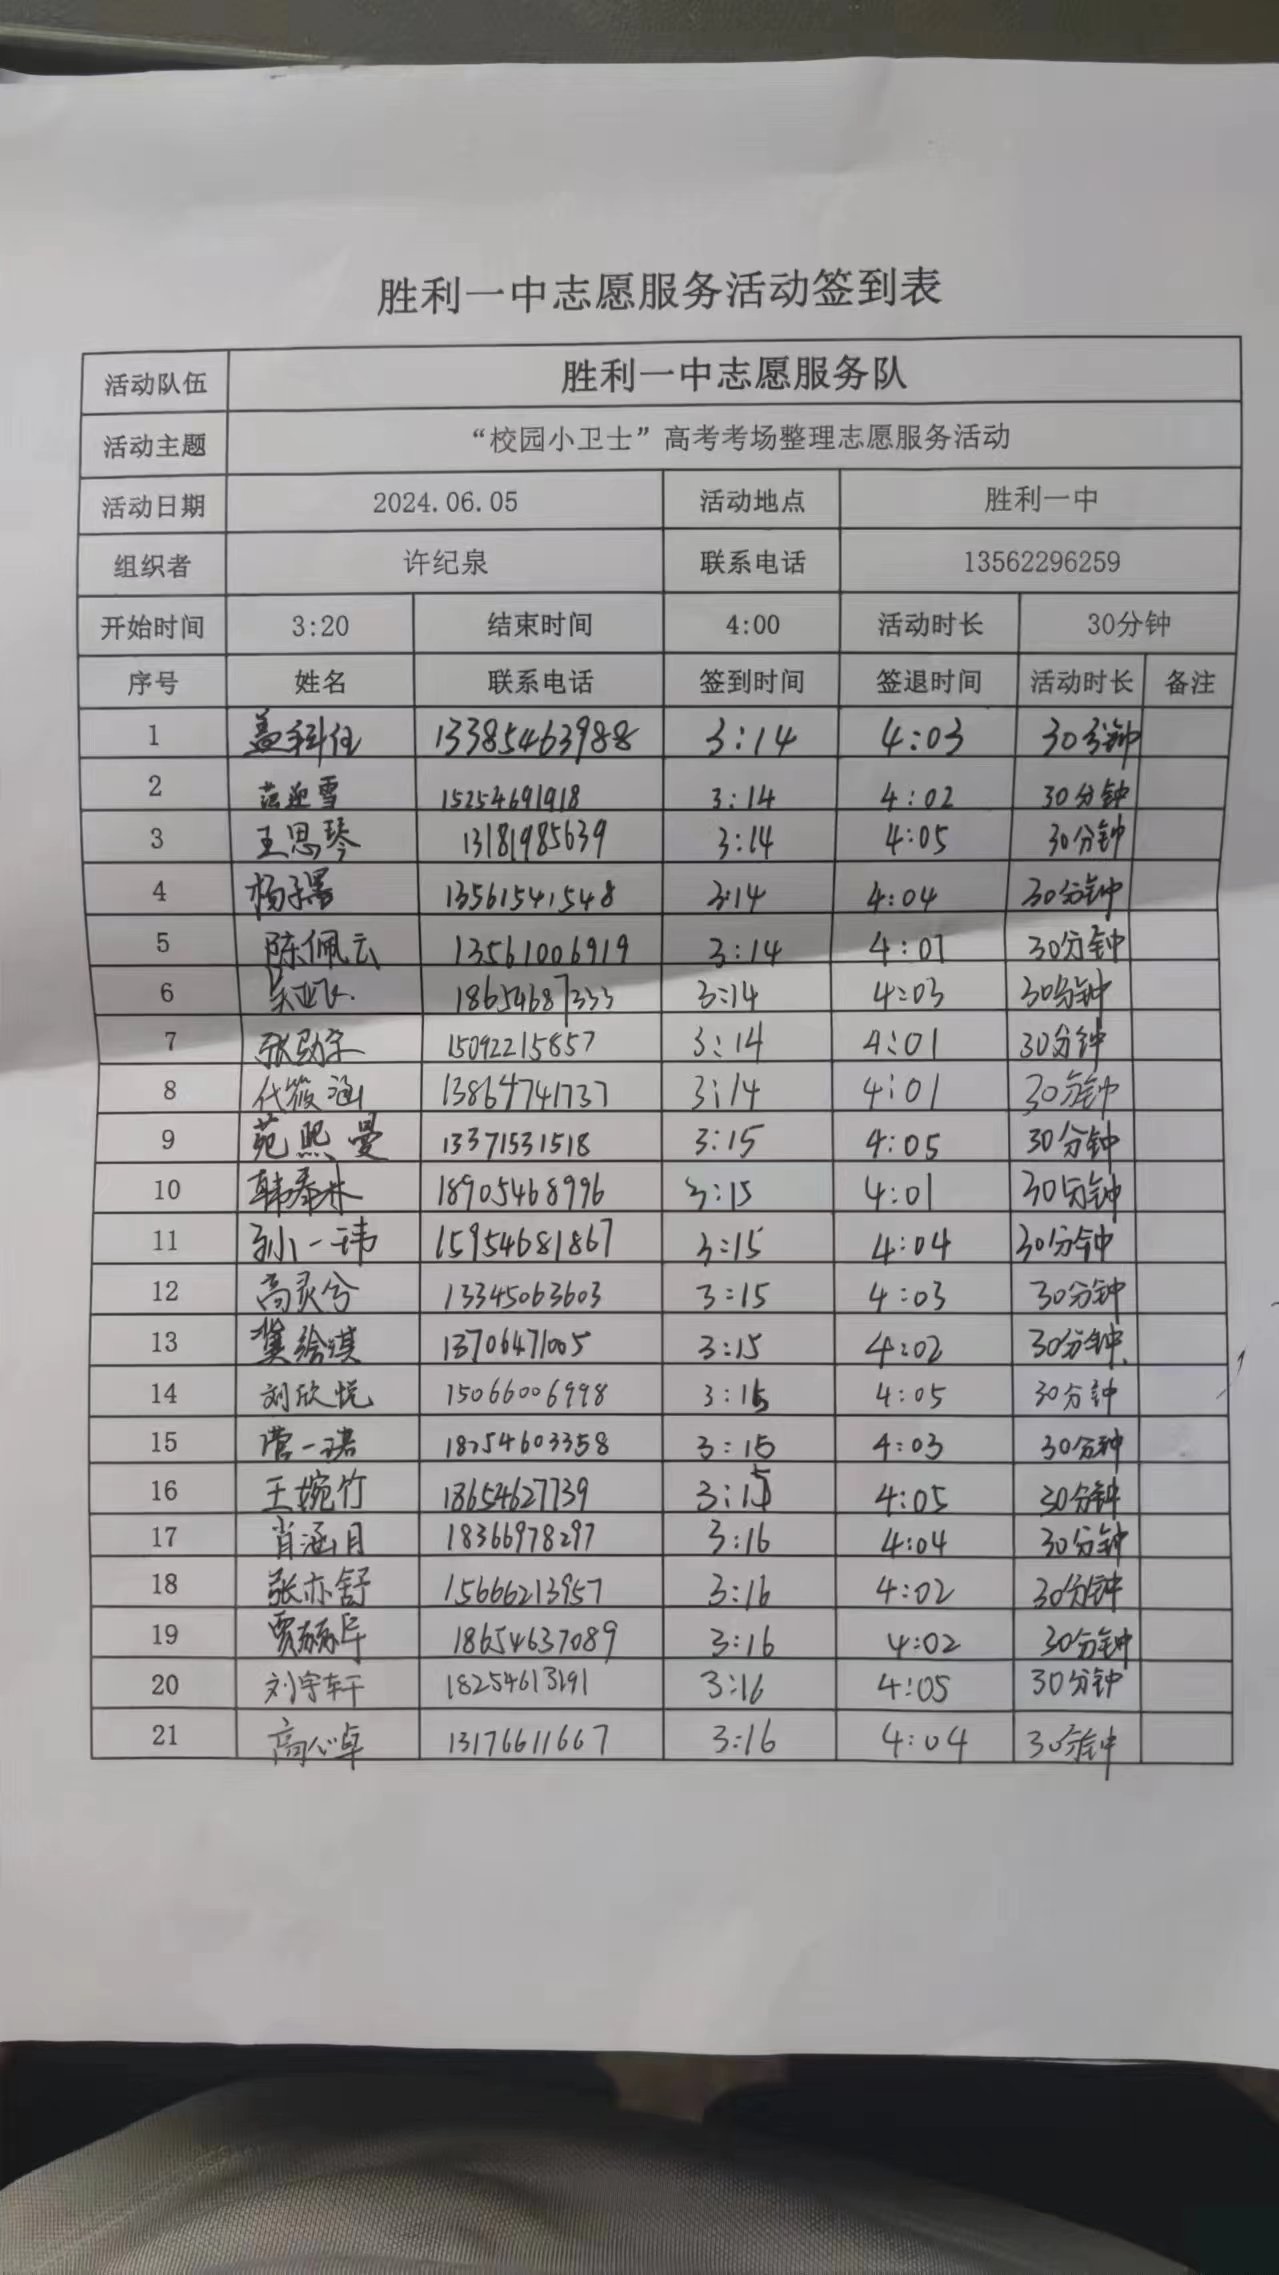 胜利一中志愿服务活动签到表
活动队伍 胜利一中志愿服务队
活动主题 “校园小卫士”高考考场整理志愿服务活动
活动日期 2024.06.05 活动地点 胜利一中
组织者 许纪泉 联系电话 13562296259
开始时间 3:20 结束时间 4:00 活动时长 30分钟
序号 姓名 联系电话 签到时间 签退时间 活动时长 备注
1 13385463988 3:14 4:03 30分钟
2 范迎雪 15254691918 3:14 4:02 30分钟
3 王思琴 13181985639 3:14 4:05 30分钟
4 13561541548 3:14 4:04 30分钟
5 陈佩云 13561006919 3:14 4:01 30分钟
6 18654687333 3:14 4:03 30分钟
7 15092215857 3:14 4:01 30分钟
8 代筱涵 13864741737 3:14 4:01 30分钟
9 苑熙曼 13371531518 3:15 4:05 30分钟
10 韩春林 18905468996 3:15 4:01 30分钟
11 孙一玮 15954681867 3:15 4:04 30分钟
12 高灵兮 13345063603 3:15 4:03 30分钟
13 13706471005 3:15 4:02 30分钟
14 刘欣悦 15066006998 3:15 4:05 30分钟
15 18254603358 3:15 4:03 30分钟
16 王婉竹 18654627739 3:15 4:05 30分钟
17 肖涵月 18366978297 3:16 4:04 30分钟
18 张亦舒 15666213957 3:16 4:02 30分钟
19 18654637089 3:16 4:02 30分钟
20 刘宇轩 18254613191 3:16 4:05 30分钟
21 高心卓 13176611667 3:16 4:04 30分钟